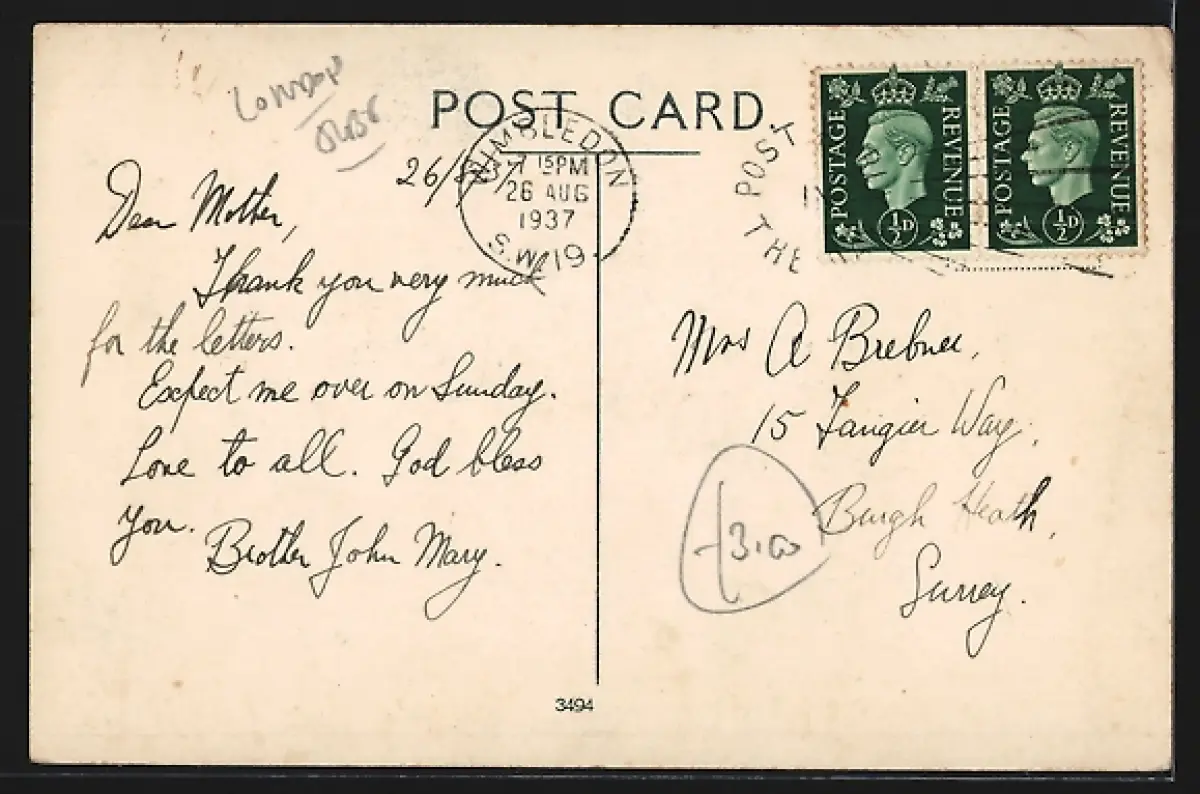 LONDON
POST CARD.
WIMBLEDON
7 15PM
26 AUG
1937
S.W.19
POST
THE
POSTAGE REVENUE
½D
POSTAGE REVENUE
½D
26/8/37
Dear Mother,
Thank you very much
for the letters.
Expect me over on Sunday.
Love to all. God bless
you.
Brother John Mary.
Mrs A Brebner,
15 Tangier Way,
Burgh Heath,
Surrey.
3.00
3494